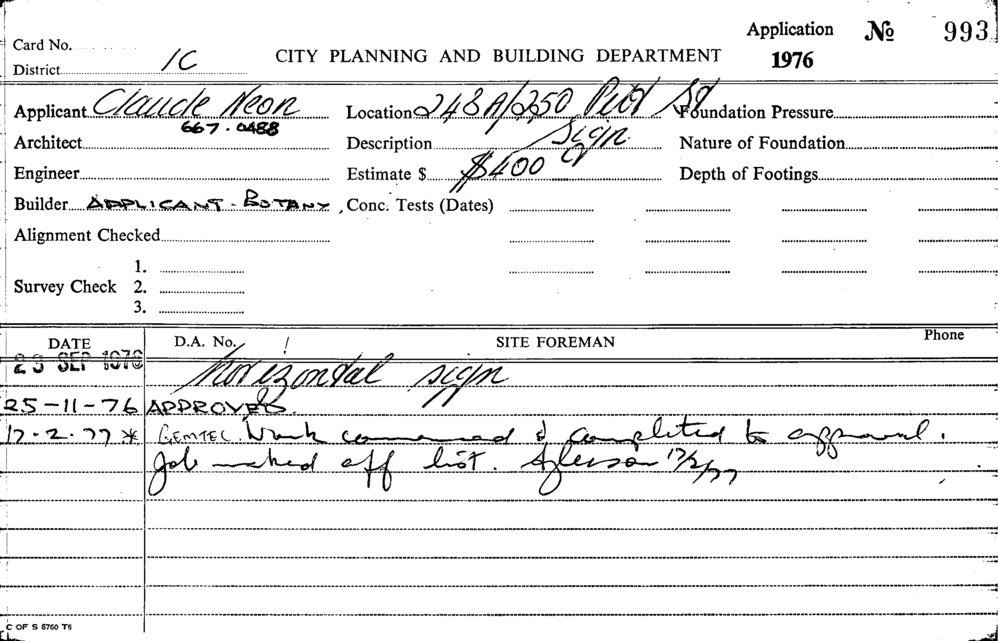 Application No 993
Card No.
1976
District 1C
CITY PLANNING AND BUILDING DEPARTMENT
Applicant Claude Neon Location 248A/250 Pitt St Foundation Pressure
667.0488
Architect Description Sign Nature of Foundation
Engineer Estimate $ $400 Depth of Footings
Builder APPLICANT - BOTANY, Conc. Tests (Dates)
Alignment Checked
1.
Survey Check 2.
3.
DATE D.A. No. / SITE FOREMAN Phone
23 SEP 1976 Horizontal sign
25-11-76 APPROVED.
17.2.77 * GEMTEC. Work commenced & completed to approval.
Job marked off list. 17/2/77
C OF S 5760 T6